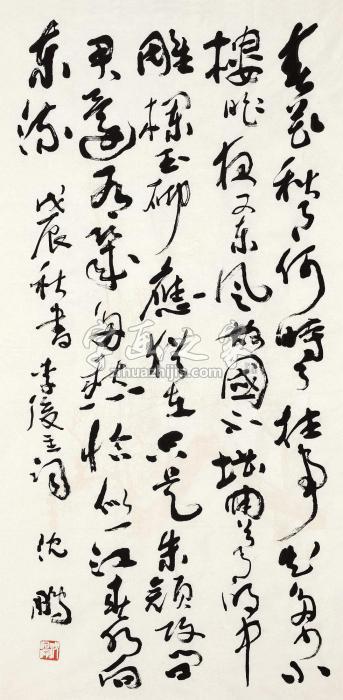 春花秋月何时了往事知多少小
楼昨夜又东风故國不堪回首月明中
雕欄玉砌應猶在只是朱顏改问
君能有几多愁恰似一江春水向
东流 戊辰秋书李後主词 沈鹏
字画之家
zhuazhijia.com